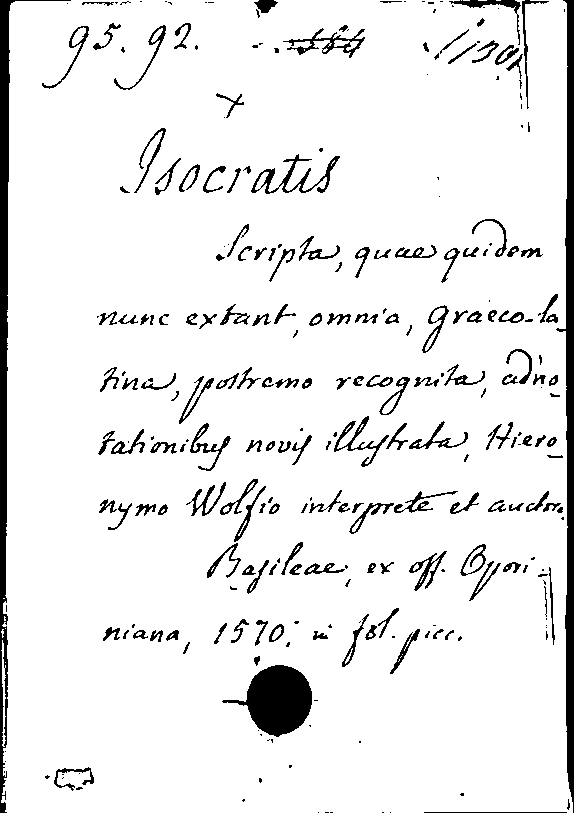 95. 92.
Isocratis
Scripta, quae quidem
nunc extant, omnia, Graeco-la-
tina, postremo recognita, adno-
tationibus novis illustrata, Hiero-
nymo Wolfio interprete et auctore.
Basileae, ex off. Opori-
niana, 1570; in fol. picc.